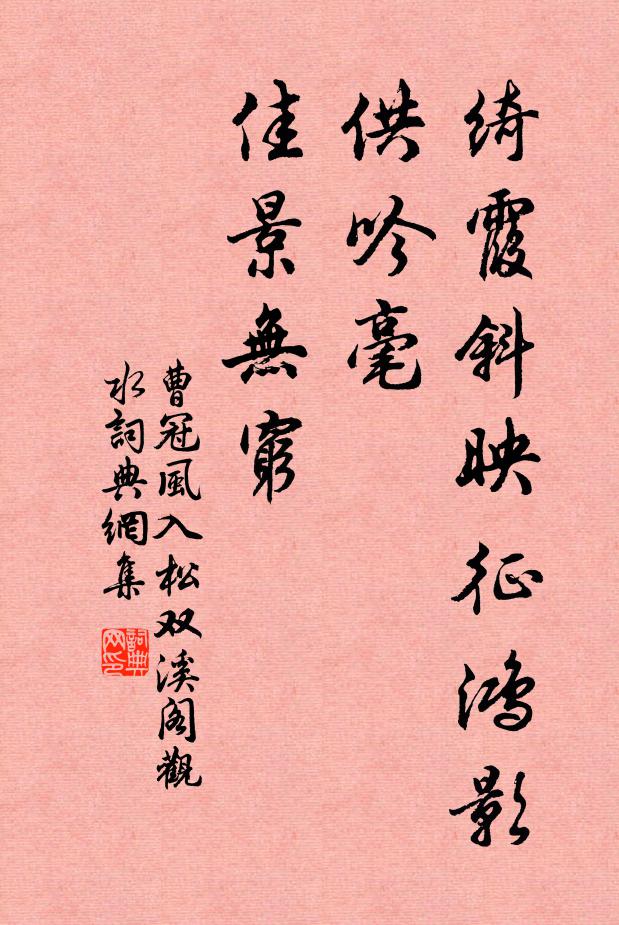 綺霞斜映征鴻影
供吟毫
佳景無窮
曹冠風入松双溪阁觀
水詞典網集
詞典
网印